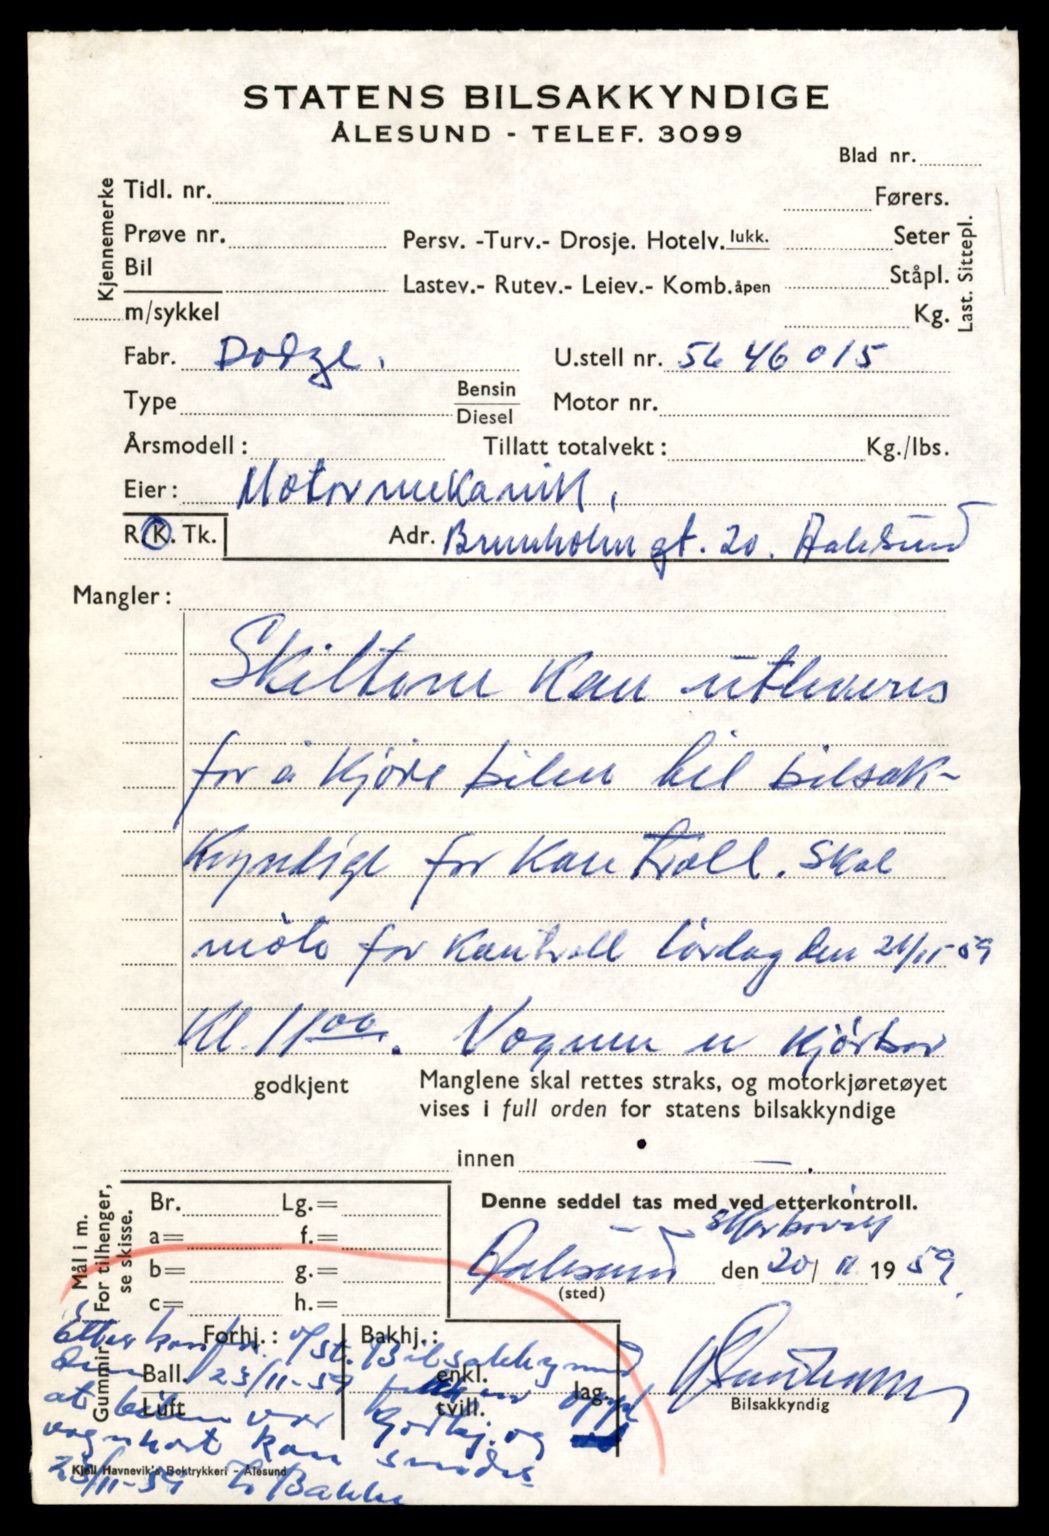 STATENS BILSAKKYNDIGE
ÅLESUND - TELEF. 3099
Blad nr.
Kjennemerke
Tidl. nr. Førers.
Prøve nr. Persv. -Turv.- Drosje. Hotelv. lukk. Seter
Bil Lastev.- Rutev.- Leiev.- Komb. åpen Ståpl.
m/sykkel Kg.
Last. Sittepl.
Fabr. Dodge. U.stell nr. 5646015
Type Bensin Diesel Motor nr.
Årsmodell: Tillatt totalvekt: Kg./lbs.
Eier: Motormekanikk,
R. K. Tk. Adr. Brunholm gt. 20. Aalesund
Mangler:
Skiltene kan utleveres
for å kjøre bilen til bilsak-
kyndige for kontroll. Skal
møte for kontroll lørdag den 21/11-59
Kl. 11 00. Vognen er kjørbar
godkjent Manglene skal rettes straks, og motorkjøretøyet
vises i full orden for statens bilsakkyndige
innen
Mål i m.
For tilhenger,
se skisse.
Br. Lg.= Denne seddel tas med ved etterkontroll.
a= f.=
b= g.= Aalesund den 20/11 1959.
(sted)
c= h.=
Gummir.
Forhj.: Bakhj.:
Ball. enkl. lag.
Luft tvill.
Bilsakkyndig
Etter konf. m/St. Bilsakkynd
den 23/11-59 oppl
at bilen var godkj. og
vognkort kan sendes
23/11-59 Bakke
Kjell Havnevik's Boktrykkeri - Ålesund